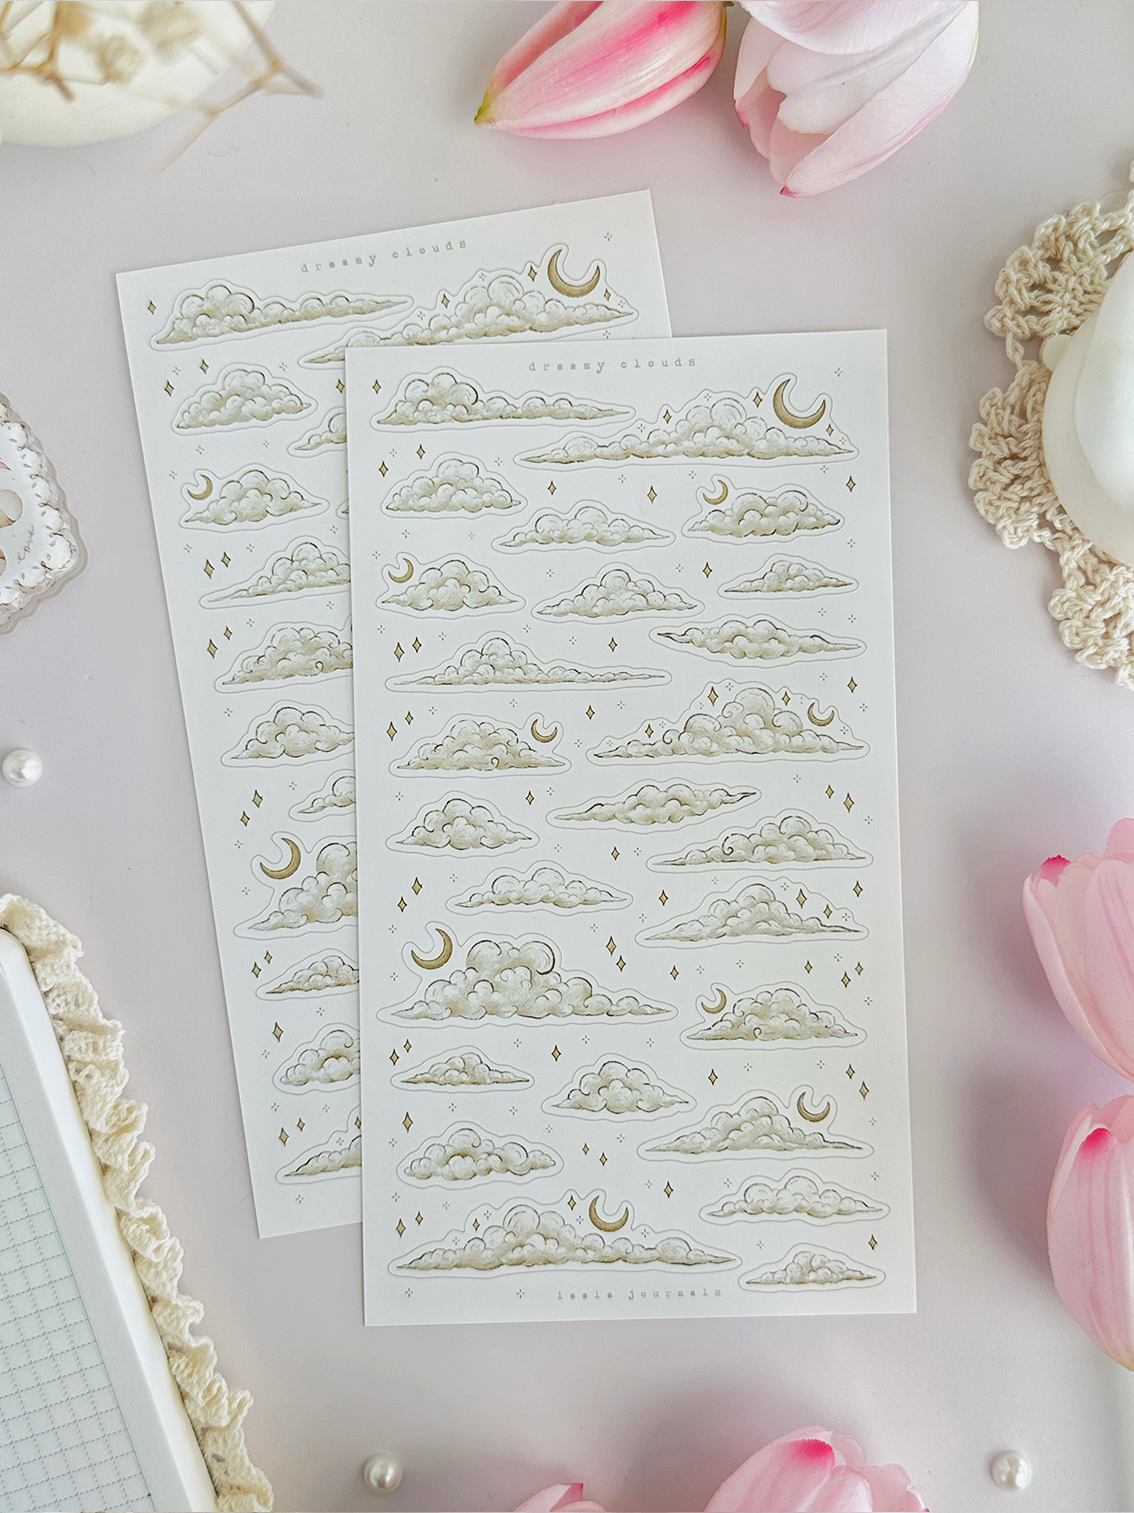 dreamy clouds
dreamy clouds
leela journals